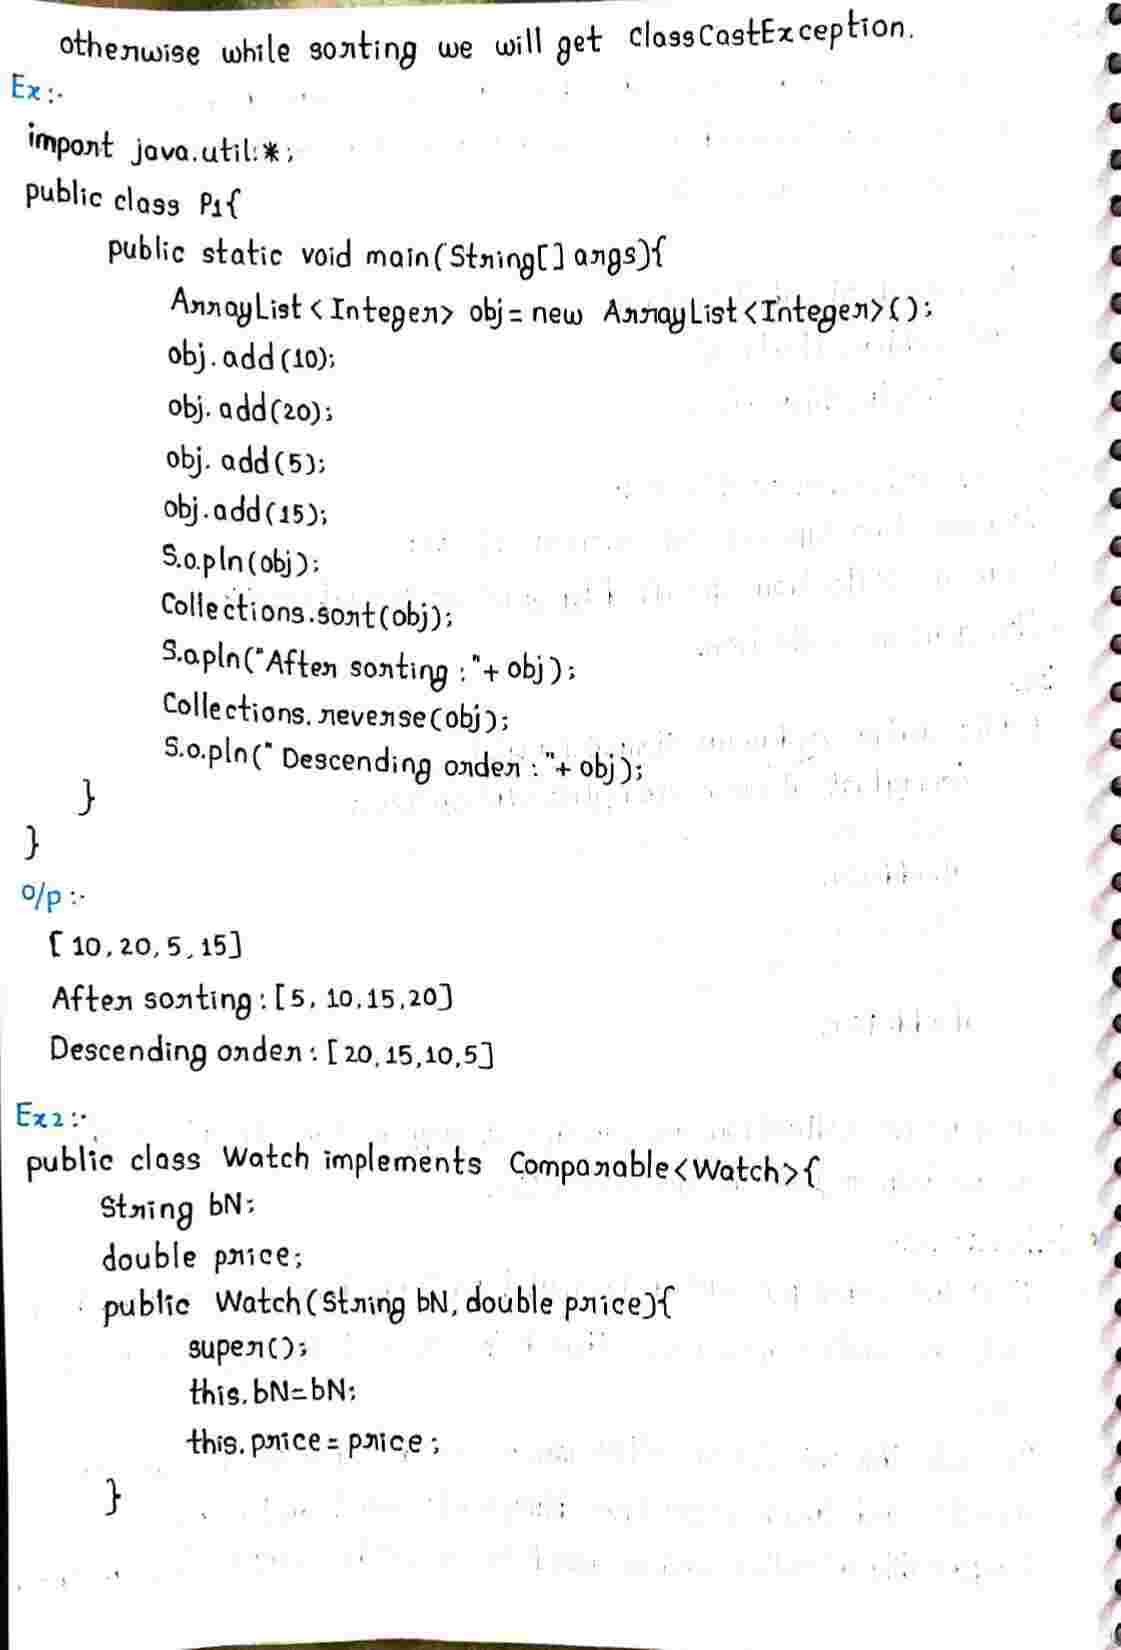 otherwise while sorting we will get ClassCastException.
Ex :-
import java.util.*;
public class P1{
public static void main(String[] args){
ArrayList<Integer> obj = new ArrayList<Integer>();
obj.add(10);
obj.add(20);
obj.add(5);
obj.add(15);
S.o.pln(obj);
Collections.sort(obj);
S.o.pln("After sorting : "+ obj);
Collections.reverse(obj);
S.o.pln(" Descending order : "+ obj);
}
}
O/p :-
[ 10, 20, 5, 15]
After sorting : [5, 10, 15, 20]
Descending order : [ 20, 15, 10, 5]
Ex2 :-
public class Watch implements Comparable<Watch>{
String bN;
double price;
public Watch(String bN, double price){
super();
this.bN=bN;
this.price = price ;
}